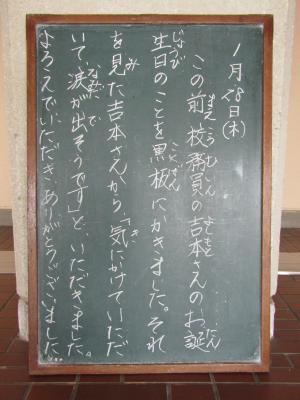 1月28日(木)
この前、校務員の吉本さんのお誕
生日のことを黒板にかきました。それ
を見た吉本さんから、「気にかけていただ
いて、涙が出そうです」と、いただきました。
よろこんでいただき、ありがとうございました。